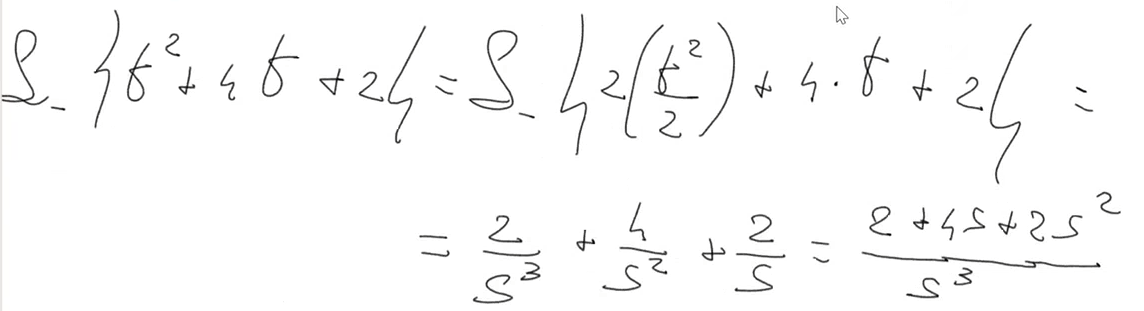 ℒ_ {t² + 4t + 2} = ℒ_ {2(t²/2) + 4·t + 2} =
= 2/s³ + 4/s² + 2/s = (2 + 4s + 2s²)/s³